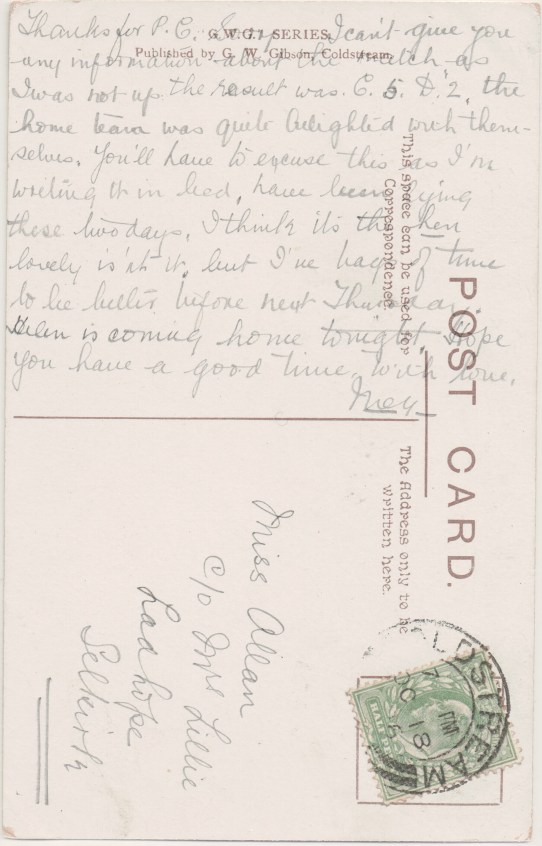 Thanks for P.C. I can't give you
any information about the match as
I was not up the result was C. 5. D. 2. the
home team was quite delighted with them-
selves. You'll have to excuse this as I'm
writing it in bed, have been lying
these two days. I think it's the
lovely is'nt it, but I've hags of time
to be better before next Thursday.
is coming home tonight. Hope
you have a good time. With love,
May
G.W.G.1 SERIES.
Published by G. W. Gibson, Coldstream.
POST CARD.
This space can be used for
Correspondence
The Address only to be
Written here.
Miss Allan
c/o Mrs Lillie
Ladhope
Selkirk
COLDSTREAM
7 PM
OC 18